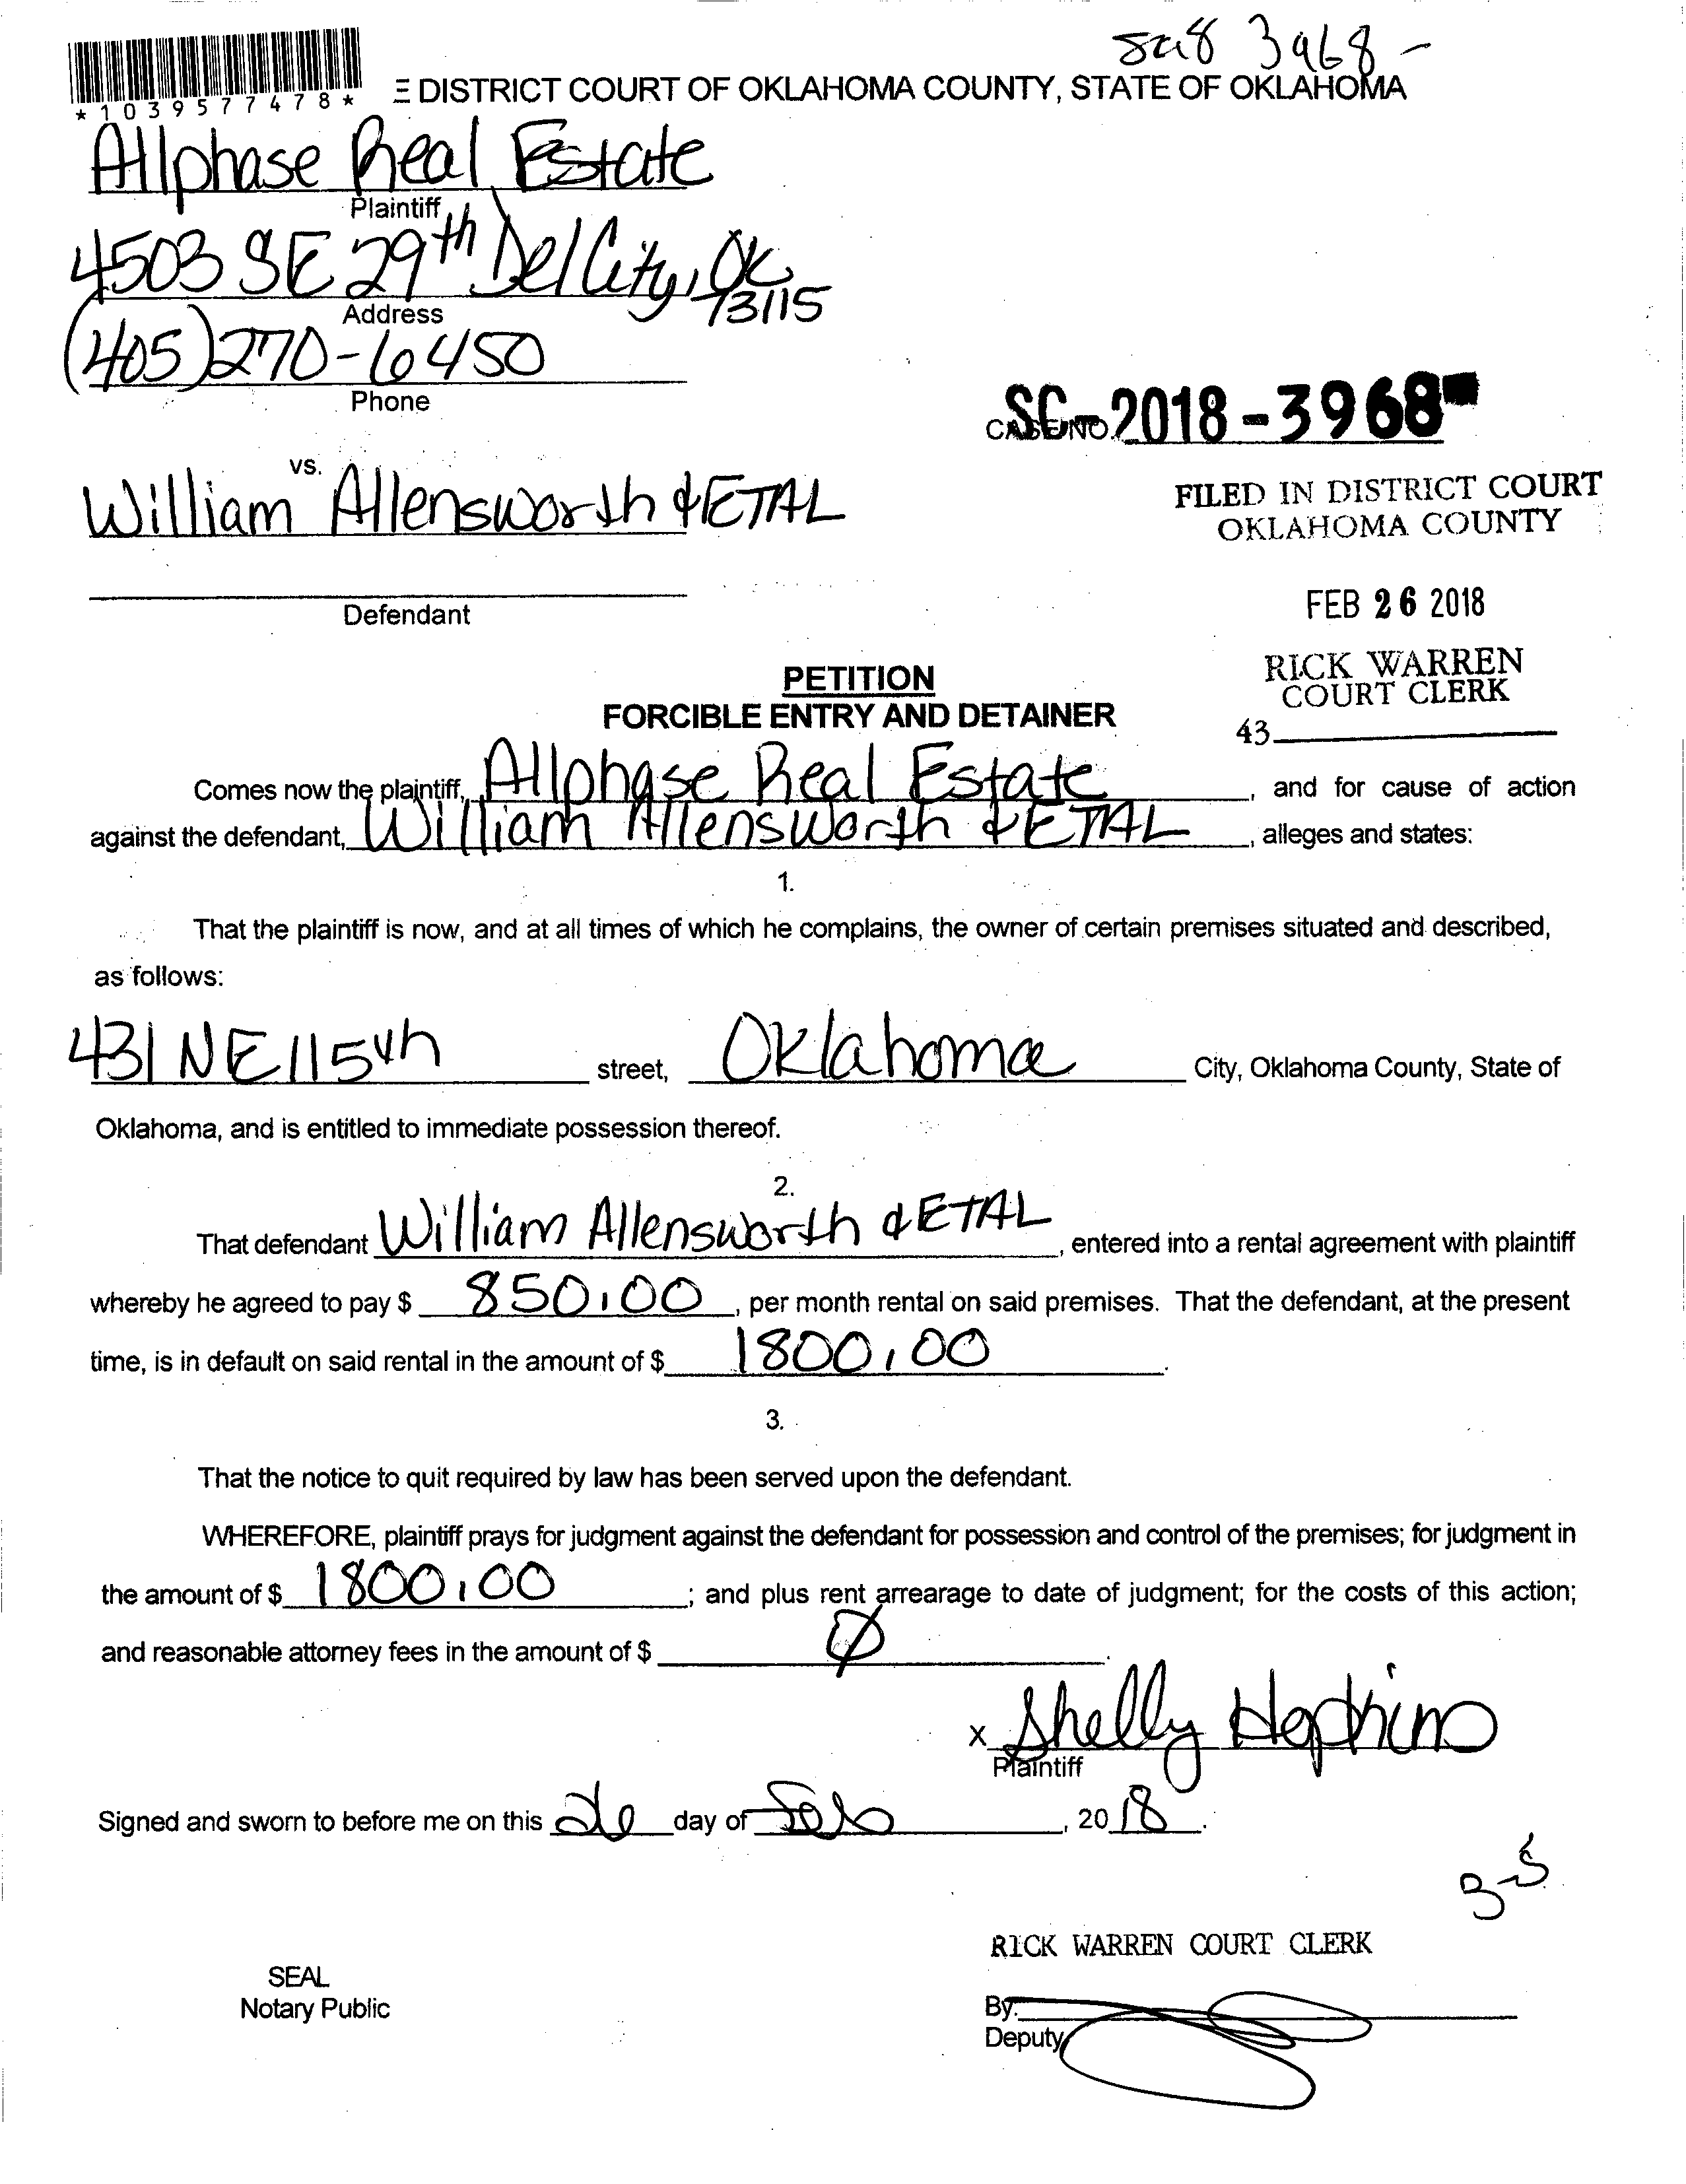 Sc18 3968-
*1039577478*
E DISTRICT COURT OF OKLAHOMA COUNTY, STATE OF OKLAHOMA
Allphase Real Estate
Plaintiff
4503 SE 29th Del City, OK
73115
Address
(405)270-6450
Phone
SC-2018-3968
CASE NO.
vs.
William Allensworth & ETAL
FILED IN DISTRICT COURT
OKLAHOMA COUNTY
FEB 26 2018
Defendant
RICK WARREN
COURT CLERK
43
PETITION
FORCIBLE ENTRY AND DETAINER
Comes now the plaintiff, Allphase Real Estate, and for cause of action
against the defendant, William Allensworth & ETAL, alleges and states:
1.
That the plaintiff is now, and at all times of which he complains, the owner of certain premises situated and described,
as follows:
431 NE 115th street, Oklahoma City, Oklahoma County, State of
Oklahoma, and is entitled to immediate possession thereof.
2.
That defendant William Allensworth & ETAL, entered into a rental agreement with plaintiff
whereby he agreed to pay $ 850.00, per month rental on said premises. That the defendant, at the present
time, is in default on said rental in the amount of $ 1800.00.
3.
That the notice to quit required by law has been served upon the defendant.
WHEREFORE, plaintiff prays for judgment against the defendant for possession and control of the premises; for judgment in
the amount of $ 1800.00; and plus rent arrearage to date of judgment; for the costs of this action;
and reasonable attorney fees in the amount of $ Ø.
x Shelly Hopkins
Plaintiff
Signed and sworn to before me on this 26 day of Feb, 2018.
3-5
RICK WARREN COURT CLERK
SEAL
Notary Public
By:
Deputy